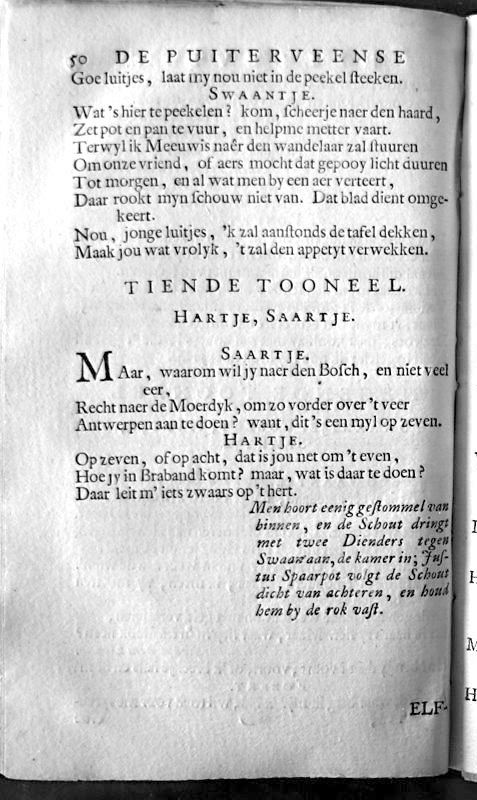 50 DE PUITERVEENSE
Goe luitjes, laat my nou niet in de peekel steeken.
SWAANTJE.
Wat 's hier te peekelen? kom, scheerje naer den haard,
Zet pot en pan te vuur, en helpme metter vaart.
Terwyl ik Meeuwis naêr den wandelaar zal stuuren
Om onze vriend, of aers mocht dat gepooy licht duuren
Tot morgen, en al wat men by een aer verteert,
Daar rookt myn schouw niet van. Dat blad dient omge-
keert.
Nou, jonge luitjes, 'k zal aanstonds de tafel dekken,
Maak jou wat vrolyk, 't zal den appetyt verwekken.
TIENDE TOONEEL.
HARTJE, SAARTJE.
SAARTJE.
MAar, waarom wil jy naer den Bosch, en niet veel
eer,
Recht naer de Moerdyk, om zo vorder over 't veer
Antwerpen aan te doen? want, dit 's een myl op zeven.
HARTJE.
Op zeven, of op acht, dat is jou net om 't even,
Hoe jy in Braband komt? maar, wat is daar te doen?
Daar leit m' iets zwaars op 't hert.
Men hoort eenig gestommel van
binnen, en de Schout dringt
met twee Dienders tegen
Swaan aan, de kamer in; Jus-
tus Spaarpot volgt de Schout
dicht van achteren, en houd
hem by de rok vast.
ELF-